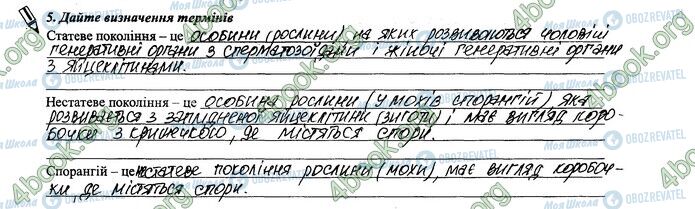 5. Дайте визначення термінів
Статеве покоління – це особини (рослини) на яких розвиваються чоловічі
генеративні органи з сперматозоїдами і жіночі генеративні органи
з яйцеклітинами.
Нестатеве покоління – це особина рослини (у мохів спорангій) яка
розвивається з заплідненої яйцеклітини (зиготи) і має вигляд коро-
бочки з кришечкою, де містяться спори.
Спорангій – це нестатеве покоління рослини (мохи), має вигляд коробоч-
ки де містяться спори.